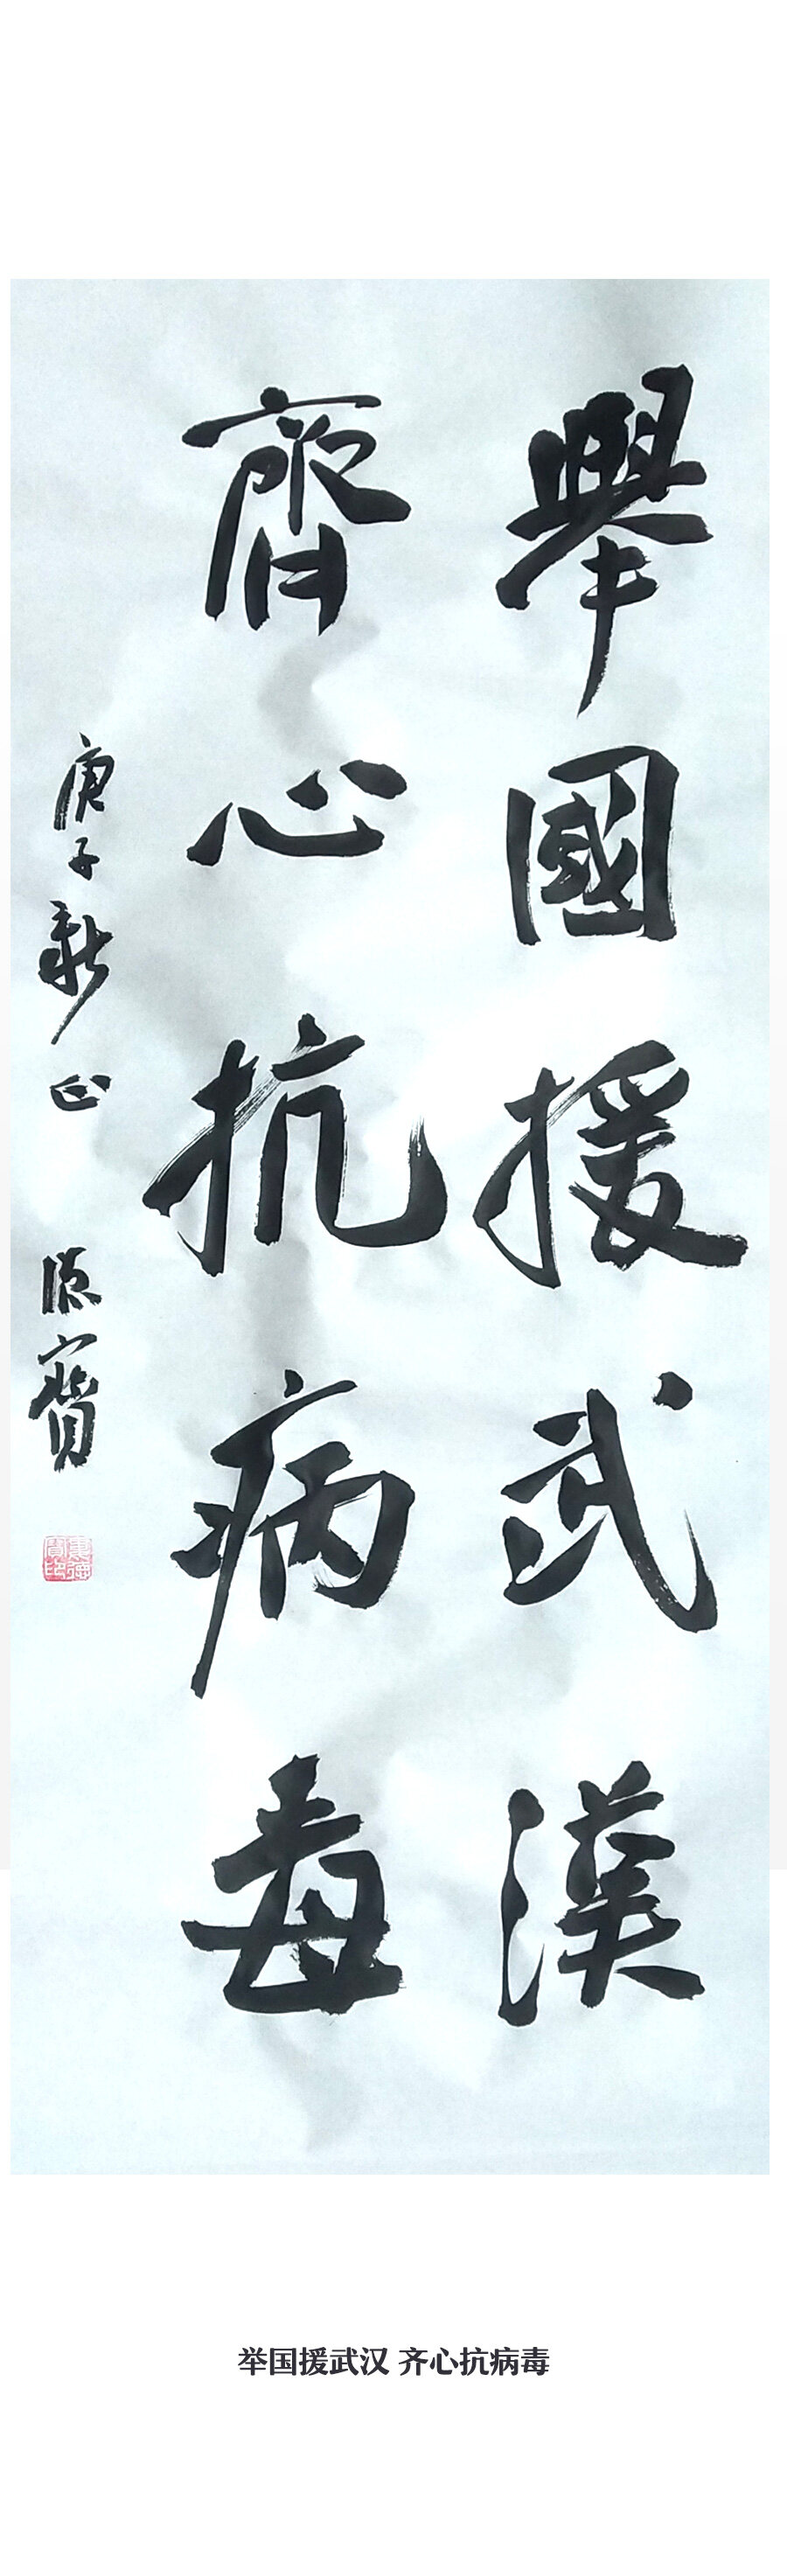 舉國援武漢
齊心抗病毒
庚子新正 德寶
举国援武汉 齐心抗病毒